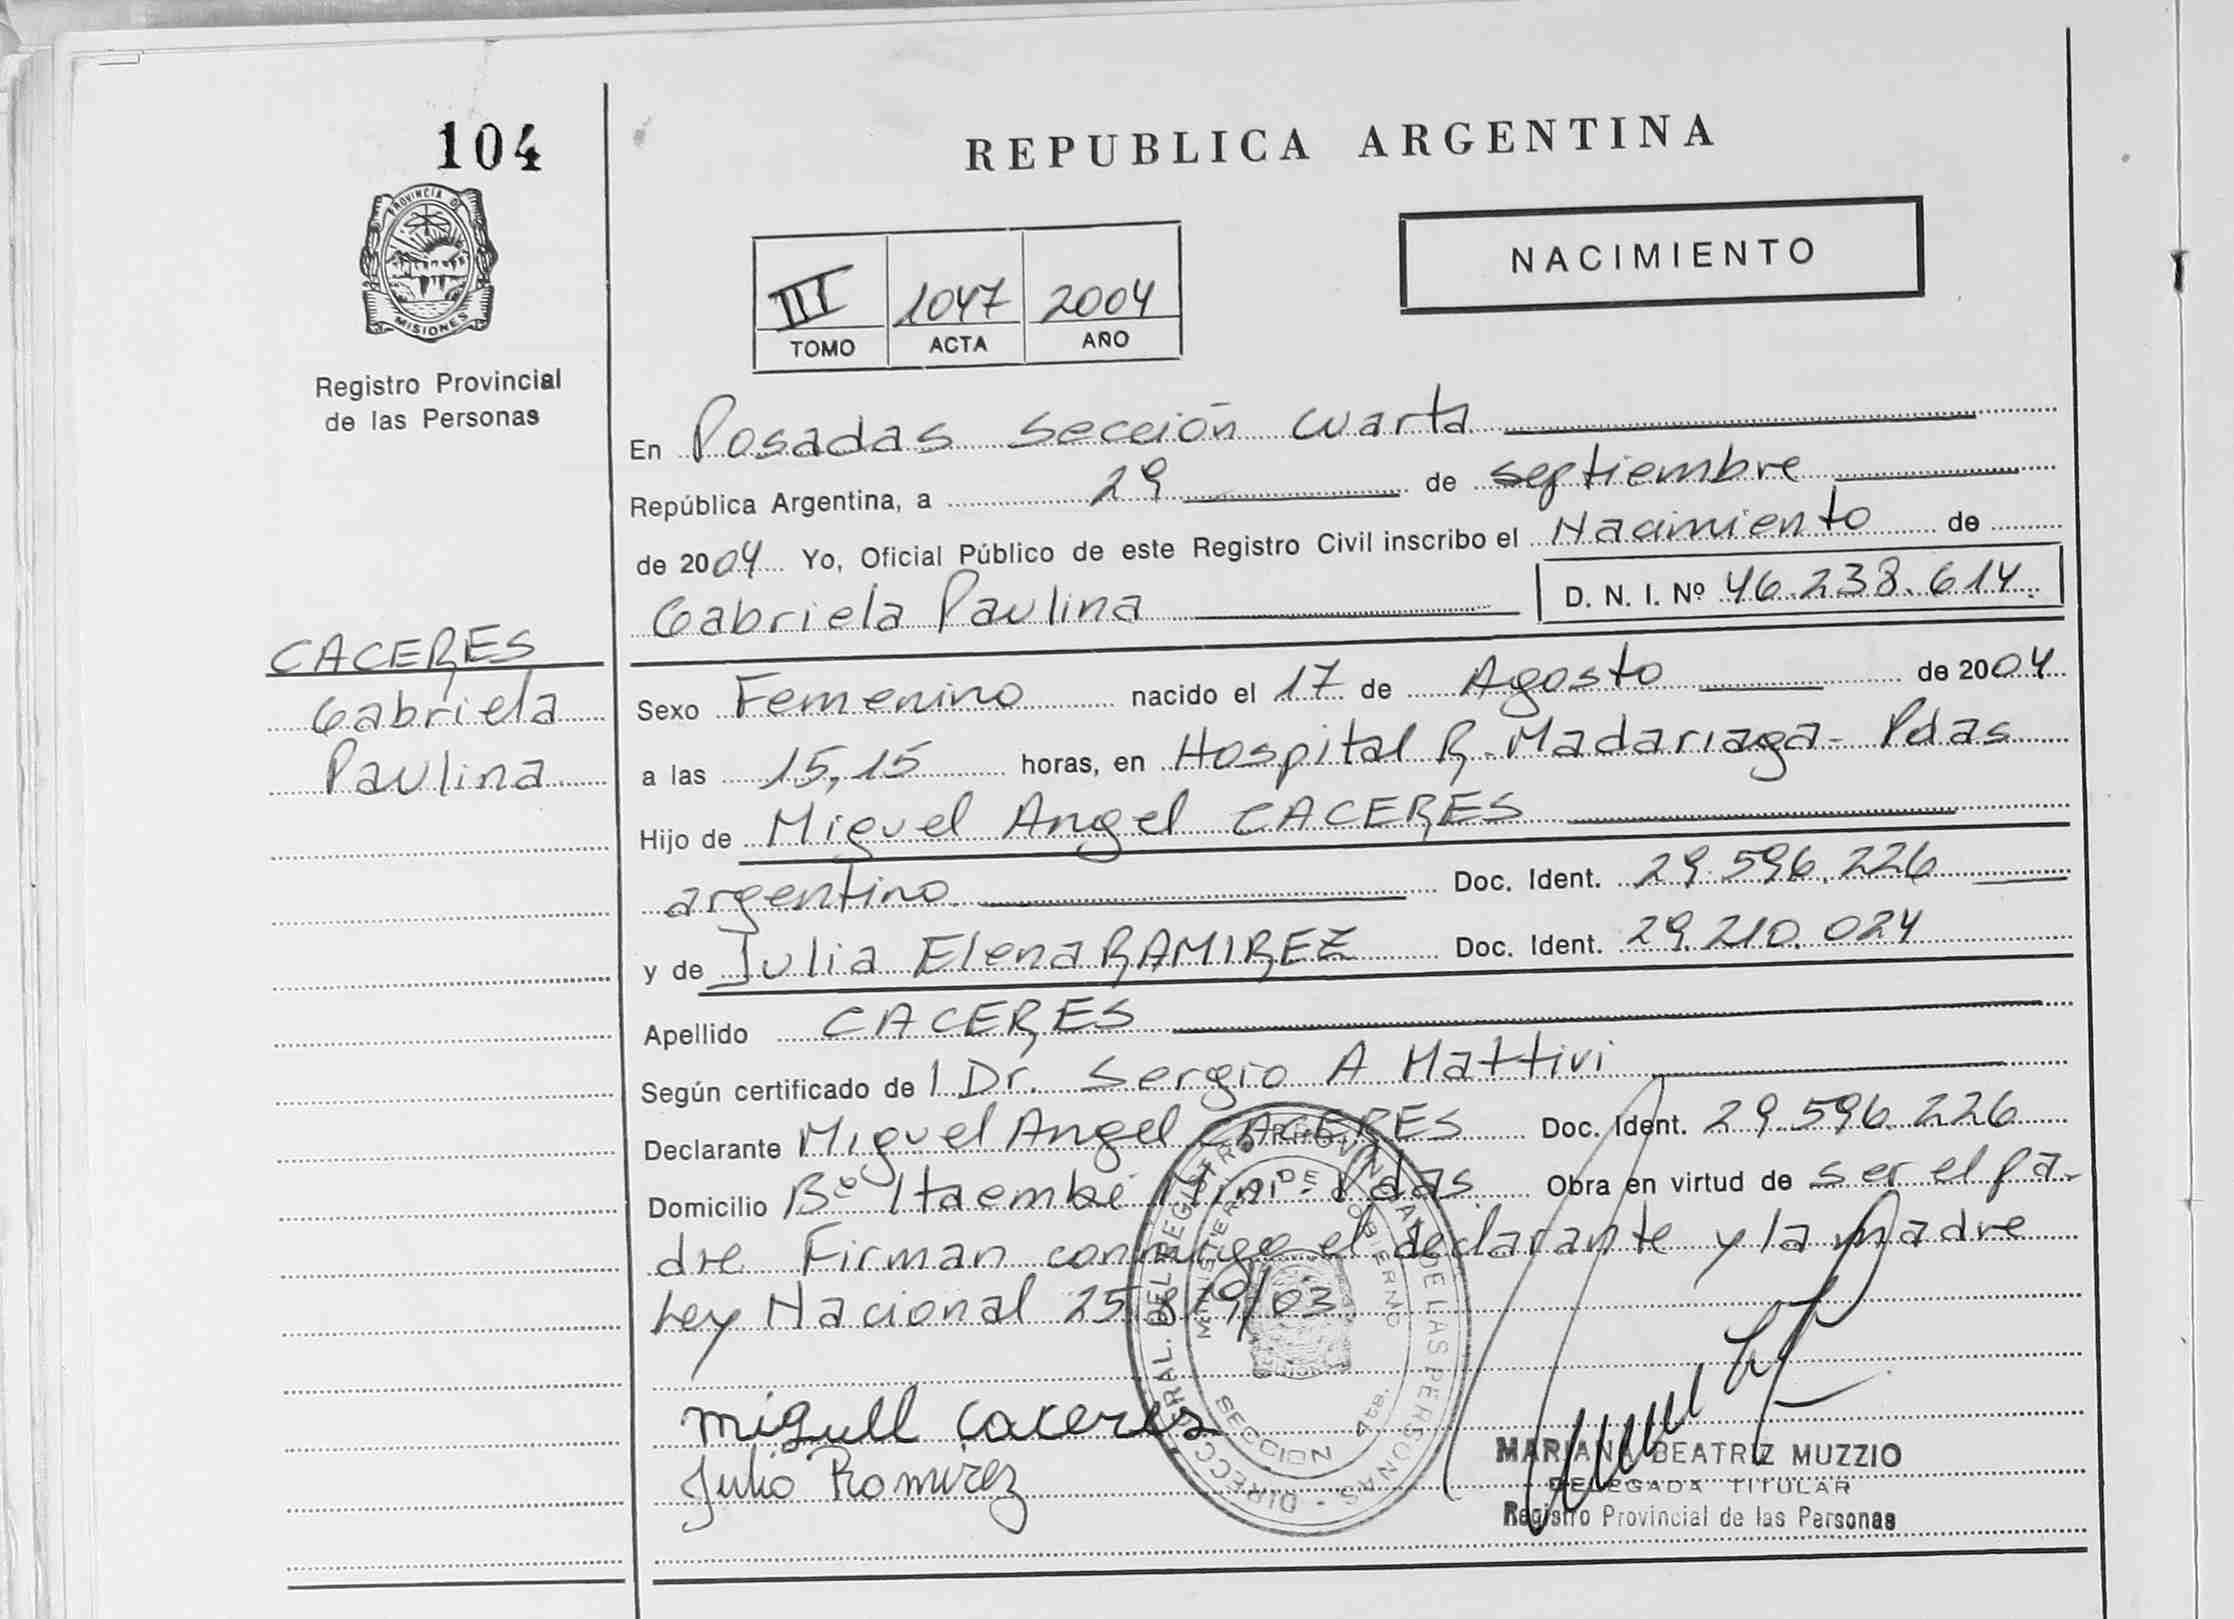 104
PROVINCIA D
MISIONES
Registro Provincial
de las Personas
REPUBLICA ARGENTINA
NACIMIENTO
III 1047 2004
TOMO ACTA AÑO
En Posadas Sección Cuarta
República Argentina, a 29 de septiembre
de 2004 Yo, Oficial Público de este Registro Civil inscribo el Nacimiento de
Gabriela Paulina D. N. I. Nº 46.238.614.
CACERES
Gabriela
Paulina
Sexo Femenino nacido el 17 de Agosto de 2004
a las 15,15 horas, en Hospital R. Madariaga - Pdas
Hijo de Miguel Angel CACERES
argentino Doc. Ident. 29.596.226
y de Julia Elena RAMIREZ Doc. Ident. 29.210.024
Apellido CACERES
Según certificado de l Dr. Sergio A Mattivi
Declarante Miguel Angel CACERES Doc. Ident. 29.596.226
Domicilio Bº Itaembé Mini - Pdas Obra en virtud de ser el pa-
dre Firman conmigo el declarante y la madre
Ley Nacional 25.819/03
DIRECC. GRAL. DEL REGISTRO PROVINCIAL DE LAS PERSONAS -
MINISTERIO DE GOBIERNO
SECCION 4ta.
miguell caceres
Julia Ramirez
MARIANA BEATRIZ MUZZIO
DELEGADA TITULAR
Registro Provincial de las Personas